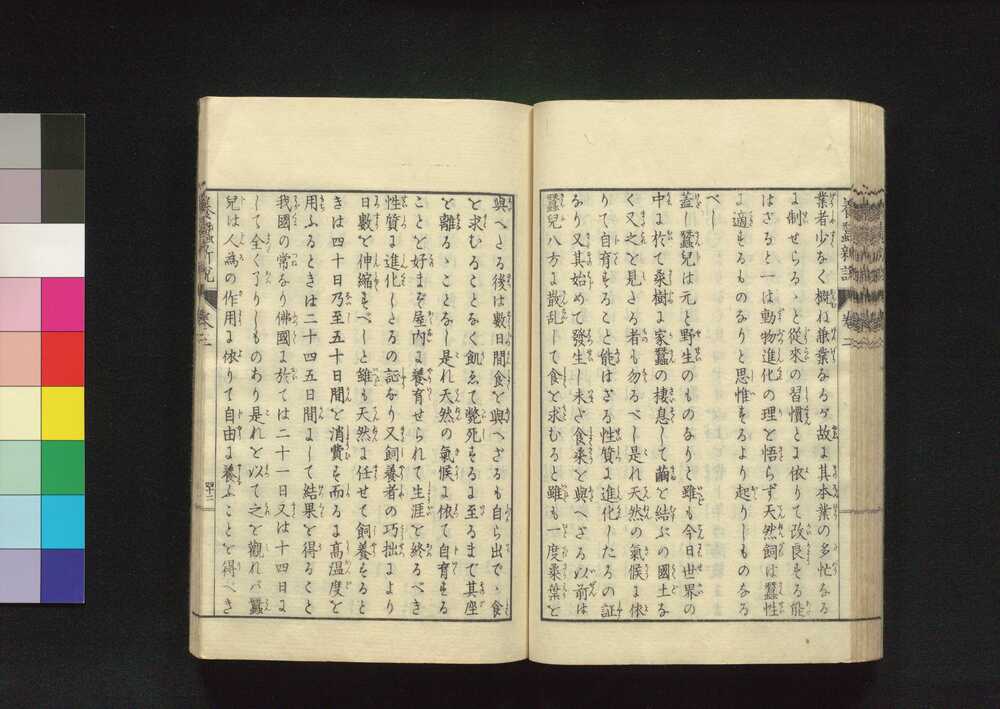 養蠶新說 卷二
業者少なく概ね兼業なるが故に其本業の多忙なる
に制せらるゝと從來の習慣とに依りて改良する能
はざると一は動物進化の理を悟らず天然飼は蠶性
に適するものなりと思惟するより起りしものなる
べし
蓋し蠶兒は元と野生のものなりと雖も今日世界の
中に於て桑樹に家蠶の棲息して繭を結ぶの國土な
く又之を見たる者も勿るべし是れ天然の氣候に依
りて自育すること能はざる性質に進化したるの証
なり又其始めて發生し未だ食桑を與へざる以前は
蠶兒八方に散乱して食を求むると雖も一度桑葉を
與へたる後は數日間食を與へざるも自ら出でゝ食
を求むることなく飢ゑて斃死するに至るまで其座
を離るゝことなし是れ天然の氣候に依て自育する
ことを好まず屋内に養育せられて生涯を終るべき
性質に進化したるの証なり又飼養者の巧拙により
日數を伸縮すべしと雖も天然に任せて飼養すると
きは四十日乃至五十日間を消費す而るに高温度を
用ふるときは二十四五日間にして結果を得るくと
我國の常なり佛國に於ては二十一日又は十四日に
して全く了りしものあり是れを以て之を觀れバ蠶
兒は人為の作用に依りて自由に養ふことを得べき
養蠶新說 卷二 四十三